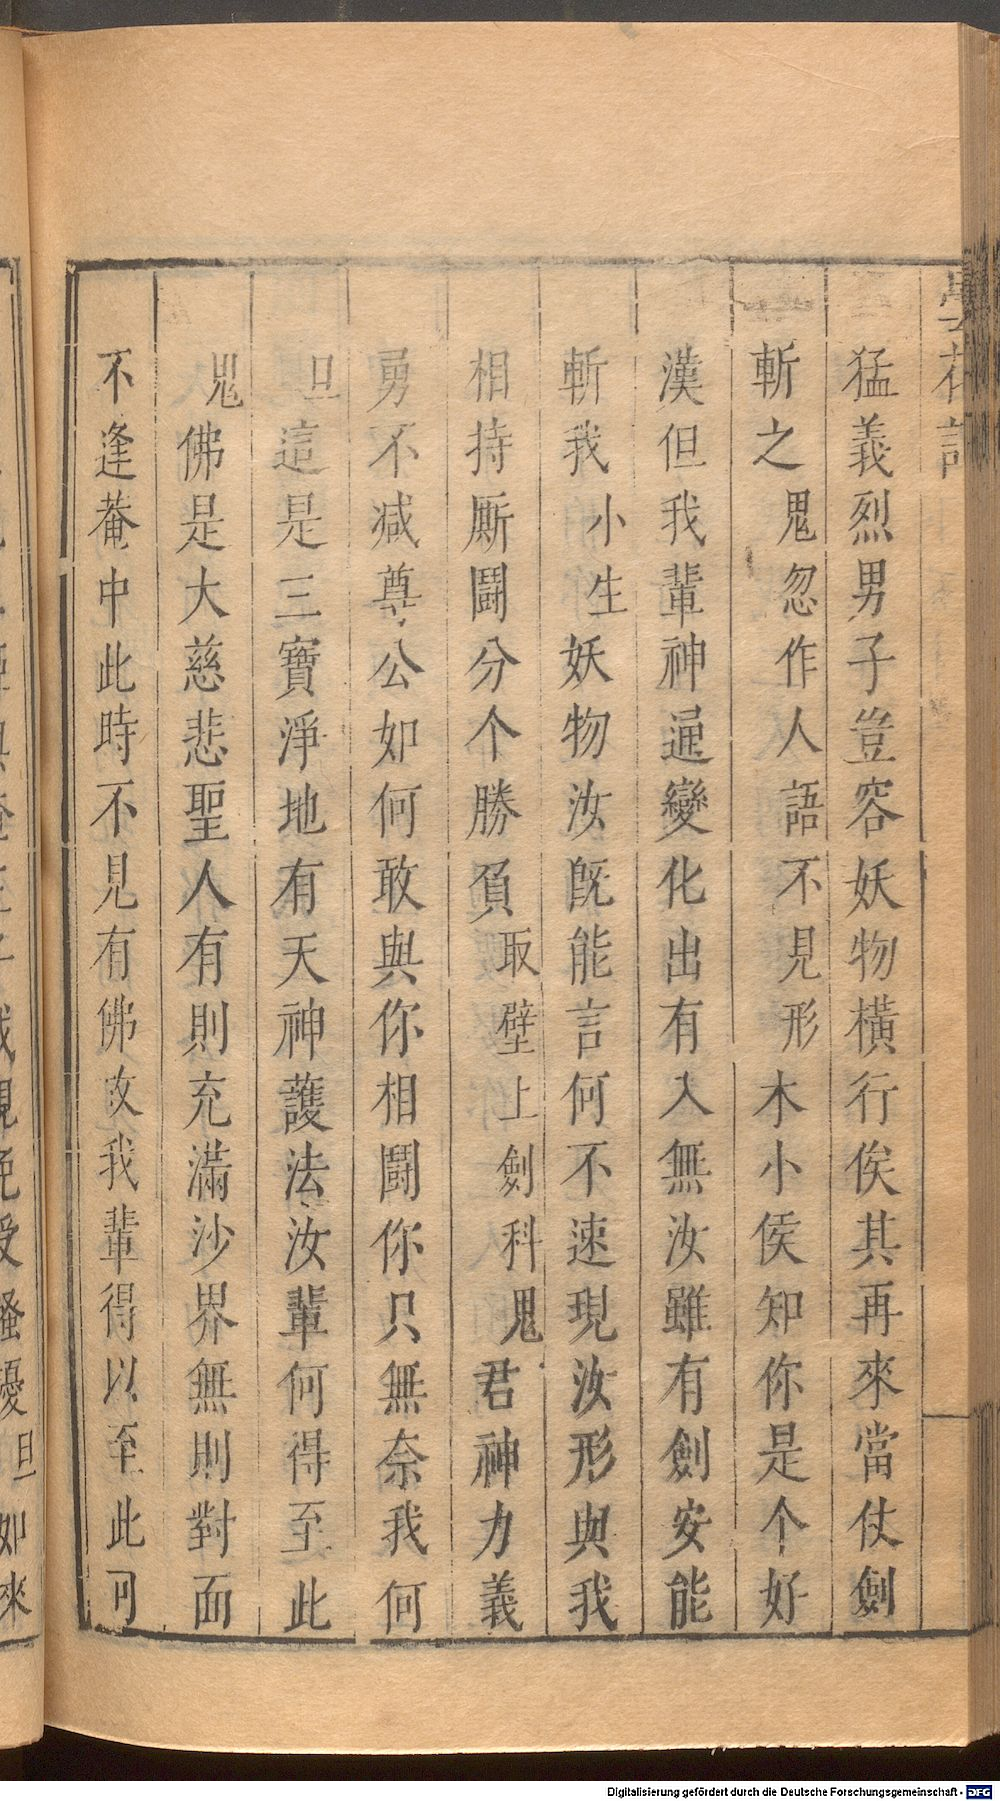 曇花記
猛義烈男子豈容妖物橫行俟其再來當仗劍
斬之鬼忽作人語不見形木小侯知你是个好
漢但我輩神通變化出有入無汝雖有劍安能
斬我小生妖物汝旣能言何不速現汝形與我
相持厮鬪分个勝負取壁上劍科鬼君神力義
勇不減尊公如何敢與你相鬪你只無奈我何
旦這是三寶淨地有天神護法汝輩何得至此
鬼佛是大慈悲聖人有則充滿沙界無則對面
不逢菴中此時不見有佛故我輩得以至此可
受騷擾旦如來
Digitalisierung gefördert durch die Deutsche Forschungsgemeinschaft - DFG